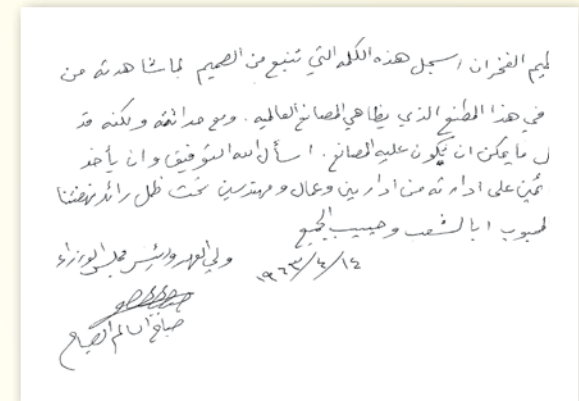 طيم الفخر ان اسجل هذه الكلمه التي تنبع من الصميم لما شاهدته من
في هذا المصنع الذي يظاهي المصانع العالميه . ومع حداثته ولكنه قد
ل ما يمكن ان يكون عليه المصانع . اسأل الله التوفيق وان يأخذ
ئمين على ادارته من اداريين وعمال ومهندسين تحت ظل رائد نهضتنا
لمحبوب ابا الشعب وحبيب الجميع
ولي العهد ورئيس مجلس الوزراء
١٩٦٣/٤/١٤
صباح السالم الصباح